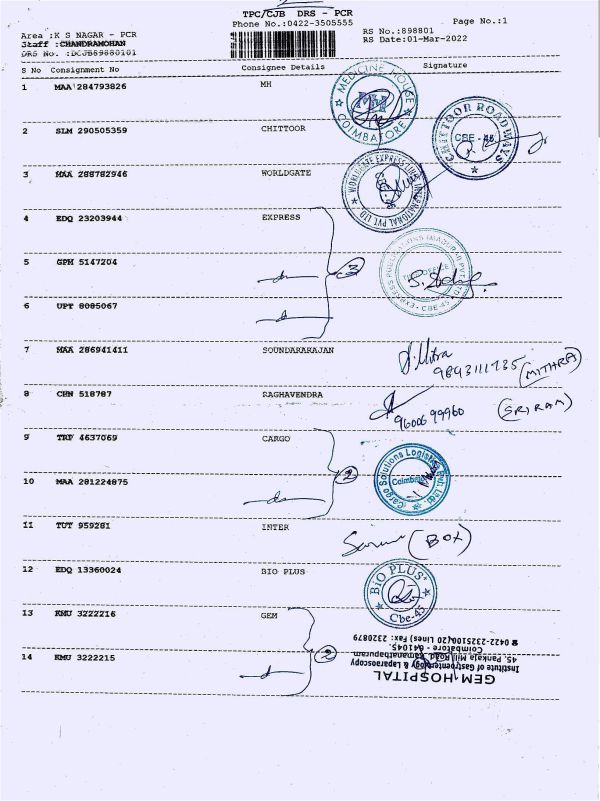 TPC/CJB DRS - PCR
Phone No.:0422-3505555
Page No.:1
Area :K S NAGAR - PCR
RS No.:898801
Staff :CHANDRAMOHAN
RS Date:01-Mar-2022
DRS No. :DCJB89880101
S No Consignment No Consignee Details Signature
1 MAA 284793826 MH
MEDICINE HOUSE
MH
COIMBATORE
2 SLM 290505359 CHITTOOR
CHITTOOR ROADWAYS
CBE - 45
3 MAA 288782946 WORLDGATE
WORLDGATE EXPRESS LINES INTERNATIONAL PVT LTD
CBE-45
4 EDQ 23203944 EXPRESS
EXPRESS PUBLICATIONS (MADURAI) PVT. LTD
CBE-45
5 GPM 5147204
3
6 UPT 8085067
7 MAA 286941411 SOUNDARARAJAN
Mitra
9843111735 (MITHRA)
8 CHN 518787 RAGHAVENDRA
9600699960 (SRIRAM)
9 TRP 4637069 CARGO
Cargo Solutions Logistics Pvt. Ltd.
Coimbatore
10 MAA 281224875
2
11 TUT 959281 INTER
(BOX)
12 EDQ 13360024 BIO PLUS
BIO PLUS
Cbe-45
13 KMU 3222216 GEM
14 KMU 3222215
2
GEM HOSPITAL
Institute of Gastroenterology & Laparoscopy
45, Pankaja Mill Road, Ramanathapuram
Coimbatore - 641045.
☎ 0422-2325100 (20 Lines) Fax: 2320879